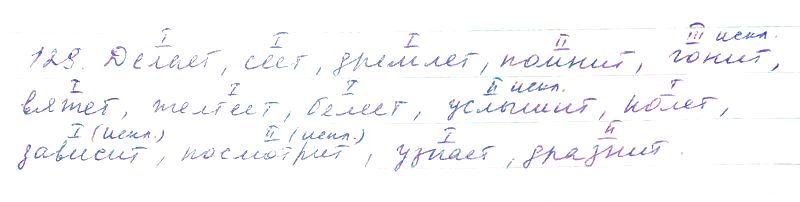 I I I II III искл.
129. Делает, сеет, дремлет, помнит, гонит,
I I I II искл. I
вяжет, желтеет, белеет, услышит, колет,
I (искл.) II (искл.) I II
зависит, посмотрит, узнает, дразнит.